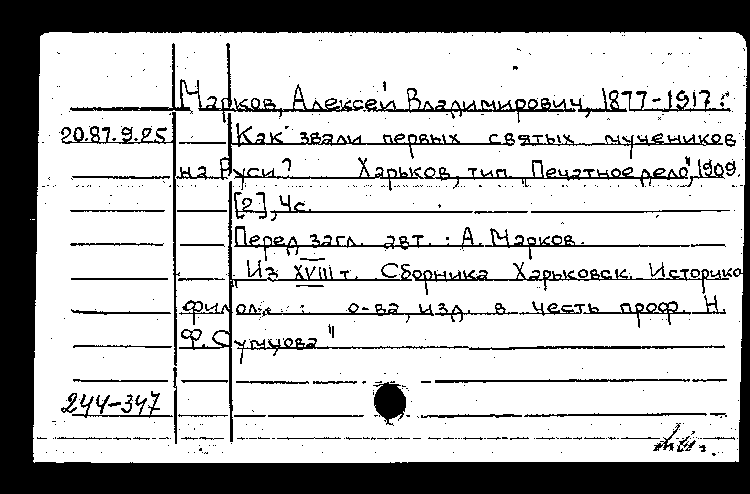 Марков, Алексей Владимирович, 1877-1917.
20.87.9.25 Как звали первых святых мучеников
на Руси? Харьков, тип. "Печатное дело", 1909.
[2], 4с.
Перед загл. авт. : А. Марков.
"Из XVIII т. Сборника Харьковск. Историко
филол. : о-ва, изд. в честь проф. Н.
Ф. Сумцова"
244-347